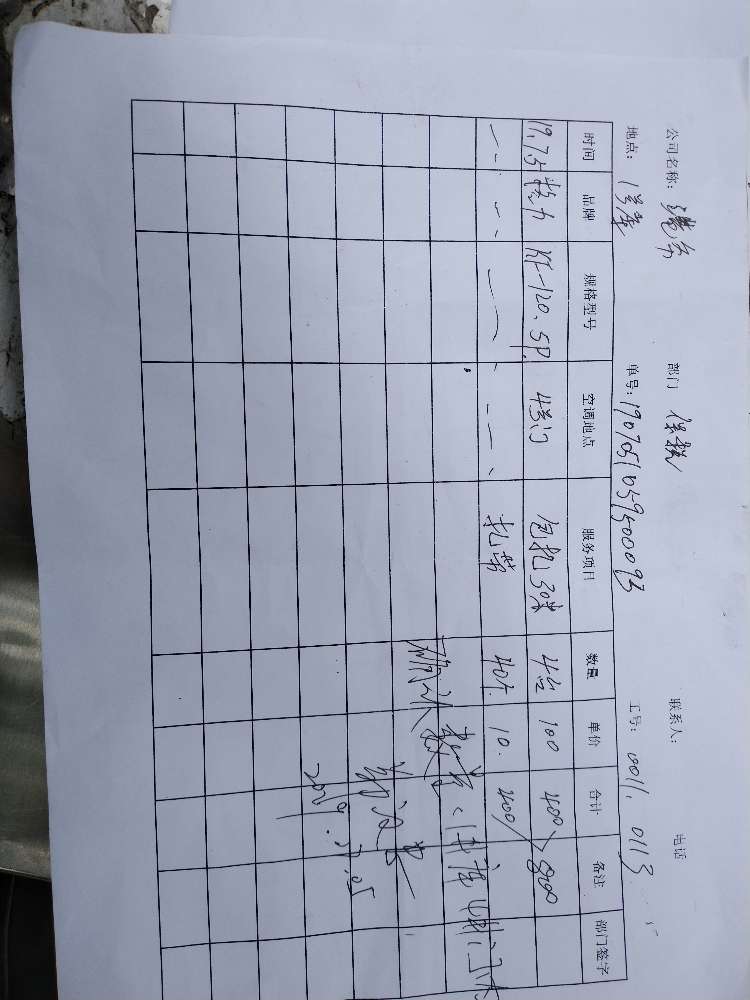 公司名称: 部门 保税 联系人: 电话
地点: 单号: 190705105950093 工号: 0011, 0113
时间 品牌 规格型号 空调地点 服务项目 数量 单价 合计 备注 部门签字
19.7.5 格力 KF-120.5P. 4号门 包扎30米 4台 100 400 800
扎带 40 10. 400
确认数量、
2019.07.05